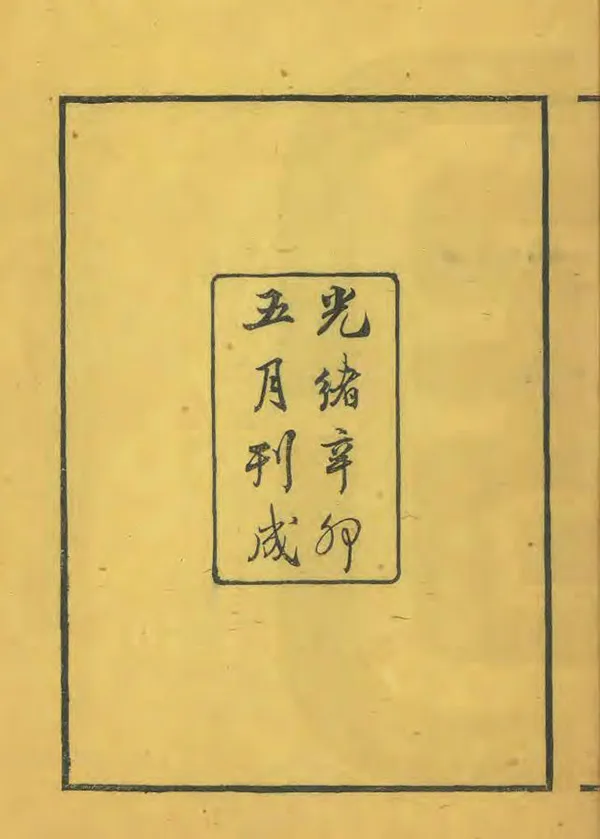 光緒辛卯
五月刊成